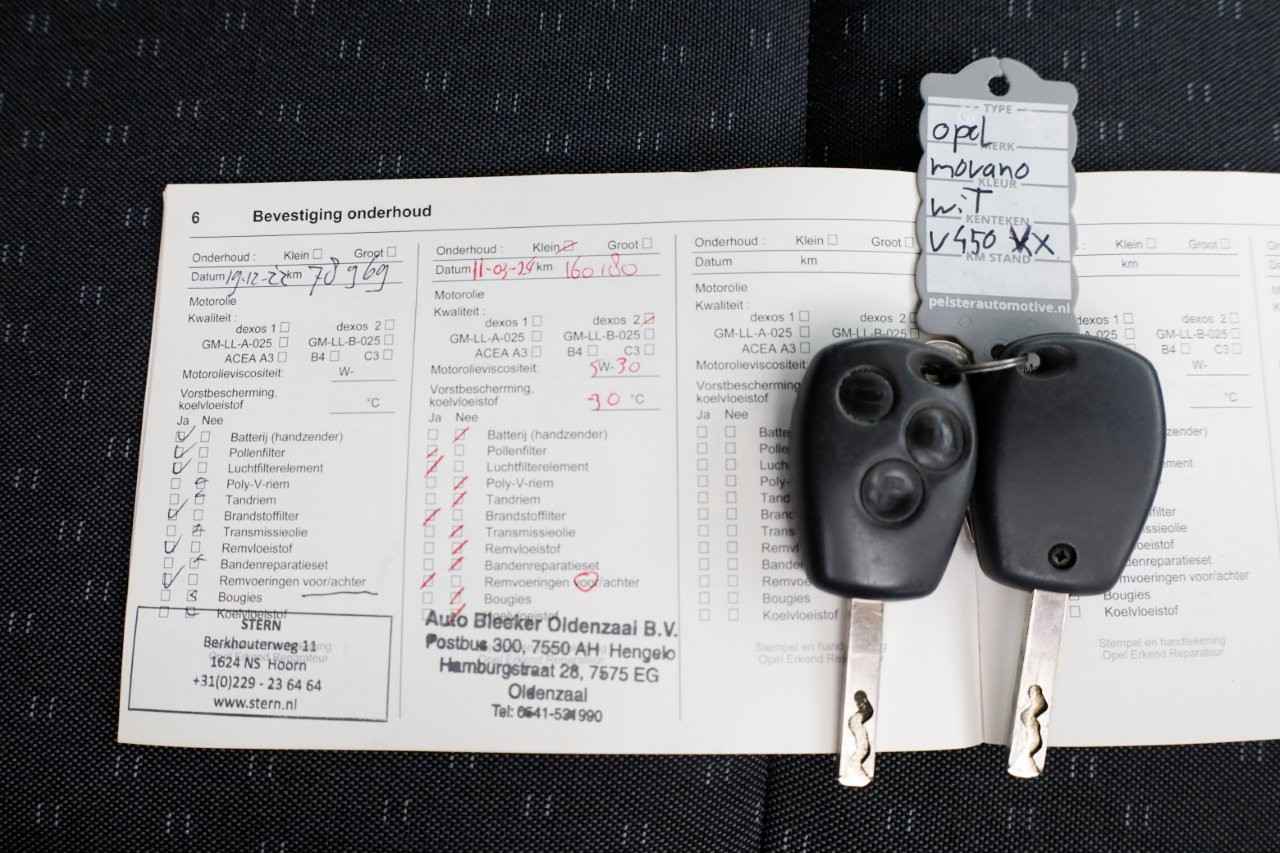 6 Bevestiging onderhoud
Onderhoud : Klein Groot
Datum 19-12-22 km 78969
Motorolie
Kwaliteit :
dexos 1 dexos 2
GM-LL-A-025 GM-LL-B-025
ACEA A3 B4 C3
Motorolieviscositeit W-
Vorstbescherming,
koelvloeistof °C
Ja Nee
Batterij (handzender)
Pollenfilter
Luchtfilterelement
Poly-V-riem
Tandriem
Brandstoffilter
Transmissieolie
Remvloeistof
Bandenreparatieset
Remvoeringen voor/achter
Bougies
Koelvloeistof
STERN
Berkhouterweg 11
1624 NS Hoorn
+31(0)229 - 23 64 64
www.stern.nl
Onderhoud : Klein Groot
Datum 11-03-24 km 160180
Motorolie
Kwaliteit :
dexos 1 dexos 2
GM-LL-A-025 GM-LL-B-025
ACEA A3 B4 C3
Motorolieviscositeit: 5W-30
Vorstbescherming,
koelvloeistof -30 °C
Ja Nee
Batterij (handzender)
Pollenfilter
Luchtfilterelement
Poly-V-riem
Tandriem
Brandstoffilter
Transmissieolie
Remvloeistof
Bandenreparatieset
Remvoeringen voor/achter
Bougies
Auto Bleeker Oldenzaal B.V.
Postbus 300, 7550 AH Hengelo
Hamburgstraat 28, 7575 EG
Oldenzaal
Tel: 0541-531990
Onderhoud : Klein Groot
Datum km
Motorolie
Kwaliteit :
dexos 1
GM-LL-A-025 GM-LL-B-025
ACEA A3
Motorolieviscositeit
Vorstbescherming,
koelvloeistof
Ja Nee
Batte
Pollen
Luch
Poly-
Tand
Brand
Trans
Remvl
Banden
Remvoe
Bougies
Koelvloeistof
Stempel en hand
Opel Erkend Repa
TYPE
opel
MERK
movano
KLEUR
wit
KENTEKEN
V450 XX
KM STAND
pelsterautomotive.nl
Klein Groot
km
dexos 2
GM-LL-B-025
B4 C3
W-
°C
Bougies
Koelvloeistof
Stempel en handtekening
Opel Erkend Reparateur